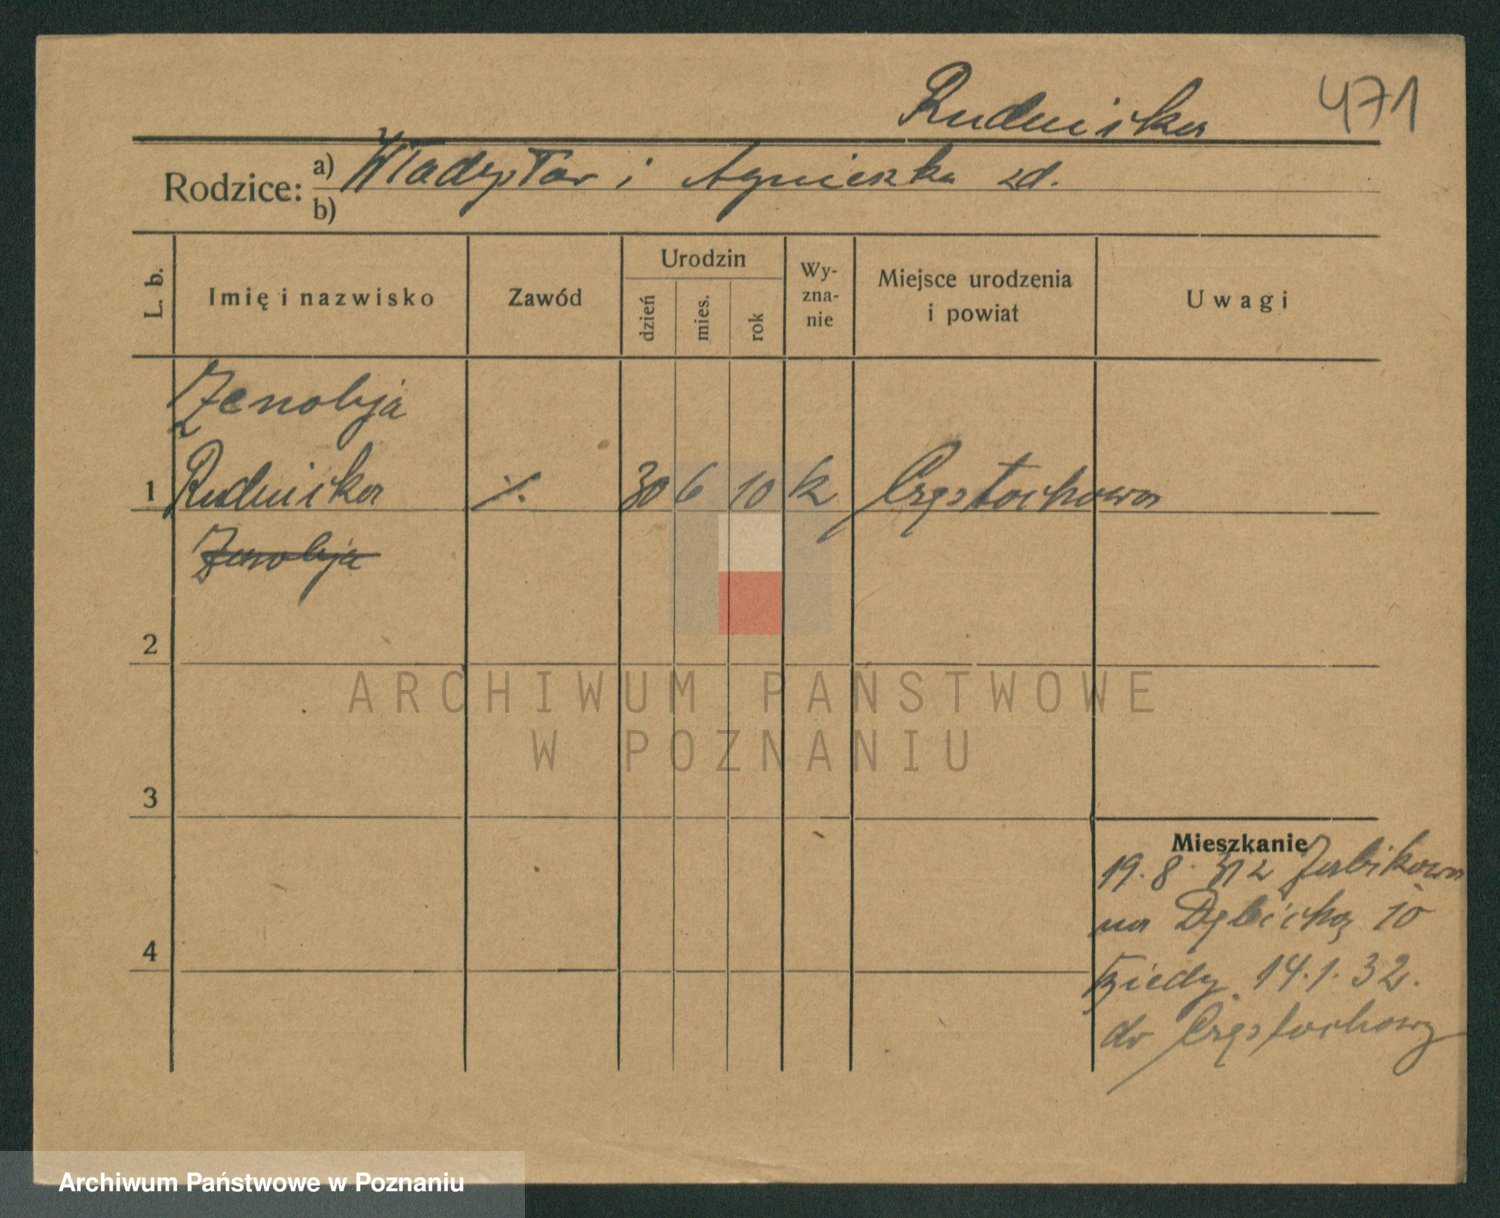 471
Rudnicka
Rodzice: a) Władysław i Agnieszka zd.
b)
L. b.
Imię i nazwisko
Zawód
Urodzin
dzień
mies.
rok
Wy-
zna-
nie
Miejsce urodzenia
i powiat
Uwagi
Zenobja
1 Rudnicka ./. 30 6 10 k Częstochowa
Zenobja
2
3
4
Mieszkanie
19. 8. 
na Dębicką 10
14.1.32.
do Częstochowy
ARCHIWUM PAŃSTWOWE
W POZNANIU
Archiwum Państwowe w Poznaniu